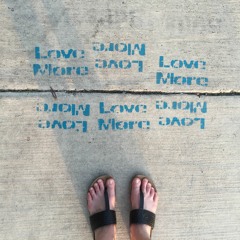 Love
More
Love
More
Love
More
Love
More
Love
More
Love
More